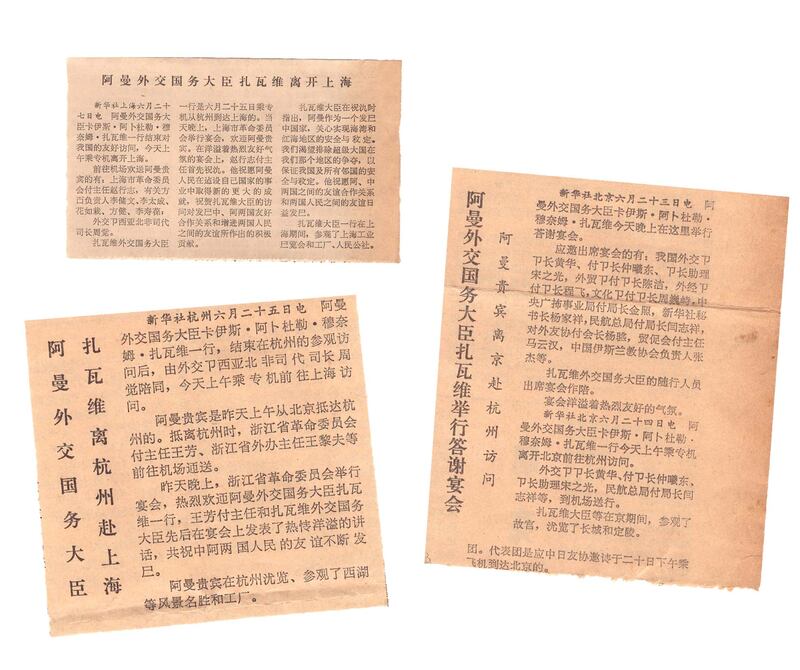 阿曼外交国务大臣扎瓦维离开上海
新华社上海六月二十
七日电 阿曼外交国务大
臣卡伊斯·阿卜杜勒·穆
奈姆·扎瓦维一行结束对
我国的友好访问，今天上
午乘专机离开上海。
前往机场欢送阿曼贵
宾的有，上海市革命委员
会付主任赵行志，有关方
百负责人李储文、李太成、
花如栽、方儆、李寿葆；
外交卩西亚北非司代
司长周觉。
扎瓦维外交国务大臣
一行是六月二十五日乘专
机从杭州到达上海的。当
天晚上，上海市革命委员
会举行宴会，欢迎阿曼贵
宾。在洋溢着热烈友好气
氛的宴会上，赵行志付主
任首先祝氿。他祝愿阿曼
人民在迠设自己国家的事
业中取得新的更大的成
就，祝贺扎瓦维大臣的访
问对发尸中、阿两国友好
合作关系和增进两国人民
之间的友谊所作出的积极
贡献。
扎瓦维大臣在祝氿时
指出，阿曼作为一个发尸
中国家，关心实现海湾和
江海地区的安全与稳定。
我们渴望排除超级大国在
我们那个地区的争夺，以
保证我国及所有邻国的安
全与稳定。他祝愿阿、中
两国之间的友谊合作关系
和两国人民之间的友谊日
益发尸。
扎瓦维大臣一行在上
海期间，参观了上海工业
尸览会和工厂、人民公社。
阿曼外交国务大臣
扎瓦维离杭州赴上海
新华社杭州六月二十五日电 阿曼
外交国务大臣卡伊斯·阿卜杜勒·穆奈
姆·扎瓦维一行，结束在杭州的参观访
问后，由外交卩西亚北非司代司长周
觉陪同，今天上午乘专机前往上海访
问。
阿曼贵宾是昨天上午从北京抵达杭
州的。抵离杭州时，浙江省革命委员会
付主任王芳、浙江省外办主任王黎夫等
前往机场迊送。
昨天晚上，浙江省革命委员会举行
宴会，热烈欢迎阿曼外交国务大臣扎瓦
维一行，王芳付主任和扎瓦维外交国务
大臣先后在宴会上发表了热情洋溢的讲
话，共祝中阿两国人民的友谊不断发
尸。
阿曼贵宾在杭州沋览、参观了西湖
等风景名胜和工厂。
阿曼外交国务大臣扎瓦维举行答谢宴会
阿曼贵宾离京赴杭州访问
新华社北京六月二十三日电 阿
曼外交国务大臣卡伊斯·阿卜杜勒·
穆奈姆·扎瓦维今天晚上在这里举行
答谢宴会。
应邀出席宴会的有：我国外交卩
卩长黄华、付卩长仲曦东、卩长助理
宋之光，外贸卩付卩长陈洁，外经卩
付卩长程飞，文化卩付卩长周巍峙，中
央广播事业局付局长金照，新华社秘
书长杨家祥，民航总局付局长闫志祥，
对外友协付会长杨骥，贸促会付主任
马云汉，中国伊斯兰教协会负责人张
杰等。
扎瓦维外交国务大臣的随行人员
出席宴会作陪。
宴会洋溢着热烈友好的气氛。
新华社北京六月二十四日电 阿
曼外交国务大臣卡伊斯·阿卜杜勒·
穆奈姆·扎瓦维一行今天上午乘专机
离开北京前往杭州访问。
外交卩卩长黄华、付卩长仲曦东、
卩长助理宋之光，民航总局付局长闫
志祥等，到机场送行。
扎瓦维大臣等在京期间，参观了
故宫，沋览了长城和定陵。
团。代表团是应中日友协邀请于二十日下午乘
飞机到达北京的。